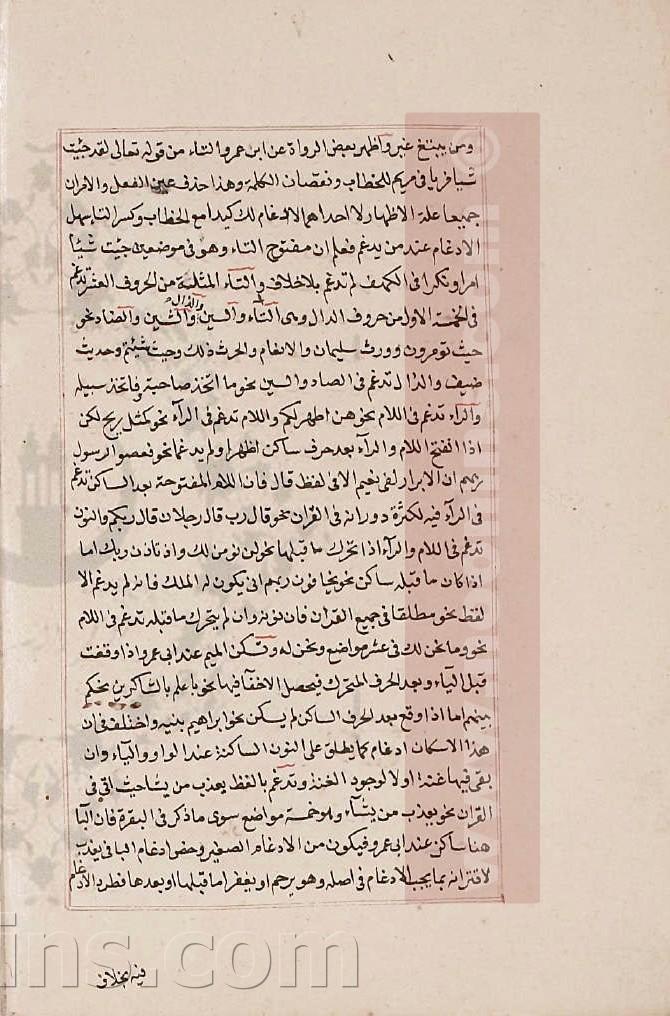 ومن يبتغ غير واظهر بعض الرواة عن ابن عمرو التاء من قوله تعالى لقد جئت
شيا فريا فى مريم للخطاب ونقصان الكلمة وهذا حذف عين الفعل والاقران
جميعا علة الاظهار لا احداهما الادغام لك كيدا مع الخطاب وكسر التا يسهل
الادغام عند من يدغم فعلم ان مفتوح التاء وهو فى موضعين جئت شيئا
امرا ونكرا فى الكهف لم تدغم بلا خلاف والتاء المثلثة من الحروف العشر تدغم
والذال
فى الخمسة الاول من حروف الدال وهى التاء والسين والشين والضاد نحو
حيث تومرون وورث سليمان والانعام والحرث ذلك وحيث شيئتم وحديث
ضيف والذال تدغم فى الصاد والسين نحو ما اتخذ صاحبة فاتخذ سبيله
والراء تدغم فى اللام نحو هن اطهر لكم واللام تدغم فى الرآء نحو كمثل ريح لكن
اذا انفتح اللام والرآء بعد حرف ساكن اظهرا ولم يدغما نحو فعصو الرسول
ربهم ان الابرار لفى نعيم الا فى لفظ قال فان اللام المفتوحة بعد الساكن تدغم
فى الرآء فيه لكثرة دورانه فى القران نحو قال رب قال رجلان قال ربكم والنون
تدغم فى اللام والرآء اذا تحرك ما قبلها نحو لن نومن لك واذ تاذن ربك اما
اذا كان ما قبله ساكن نحو يخافون ربهم انى يكون له الملك فانه لم يدغم الا
لفظ نحو مطلقا فى جميع القران فان نونه وان لم يتحرك ما قبله تدغم فى اللام
نحو وما نحن لك فى عشر مواضع ونحن له وتسكن الميم عند ابى عمرو اذا وقعت
قبل البآء وبعد الحرف المتحرك فيحصل الاخفآ فيها نحو باعلم بالشاكرين يحكم
بينهم اما اذا وقع بعد الحرف الساكن لم يسكن نحو ابراهيم بنيه واختلف فى ان
هذا الاسكان ادغام كما يطلق على النون الساكنة عند الواو والياء وان
بقى فيها غنة اولا لوجود الغنة وتدغم با لفظ يعذب من يشا حيث اتى فى
القران نحو يعذب من يشآء وهو خمسة مواضع سوى ما ذكر فى البقرة فان البآ
هنا ساكن عند ابى عمرو فيكون من الادغام الصغير وخص ادغام البا فى يعذب
لاقترانه بما يجب الادغام فى اصله وهو يرحم او يغفر اما قبلها او بعدها فطرد الادغام
فيه بخلاف
ins.com